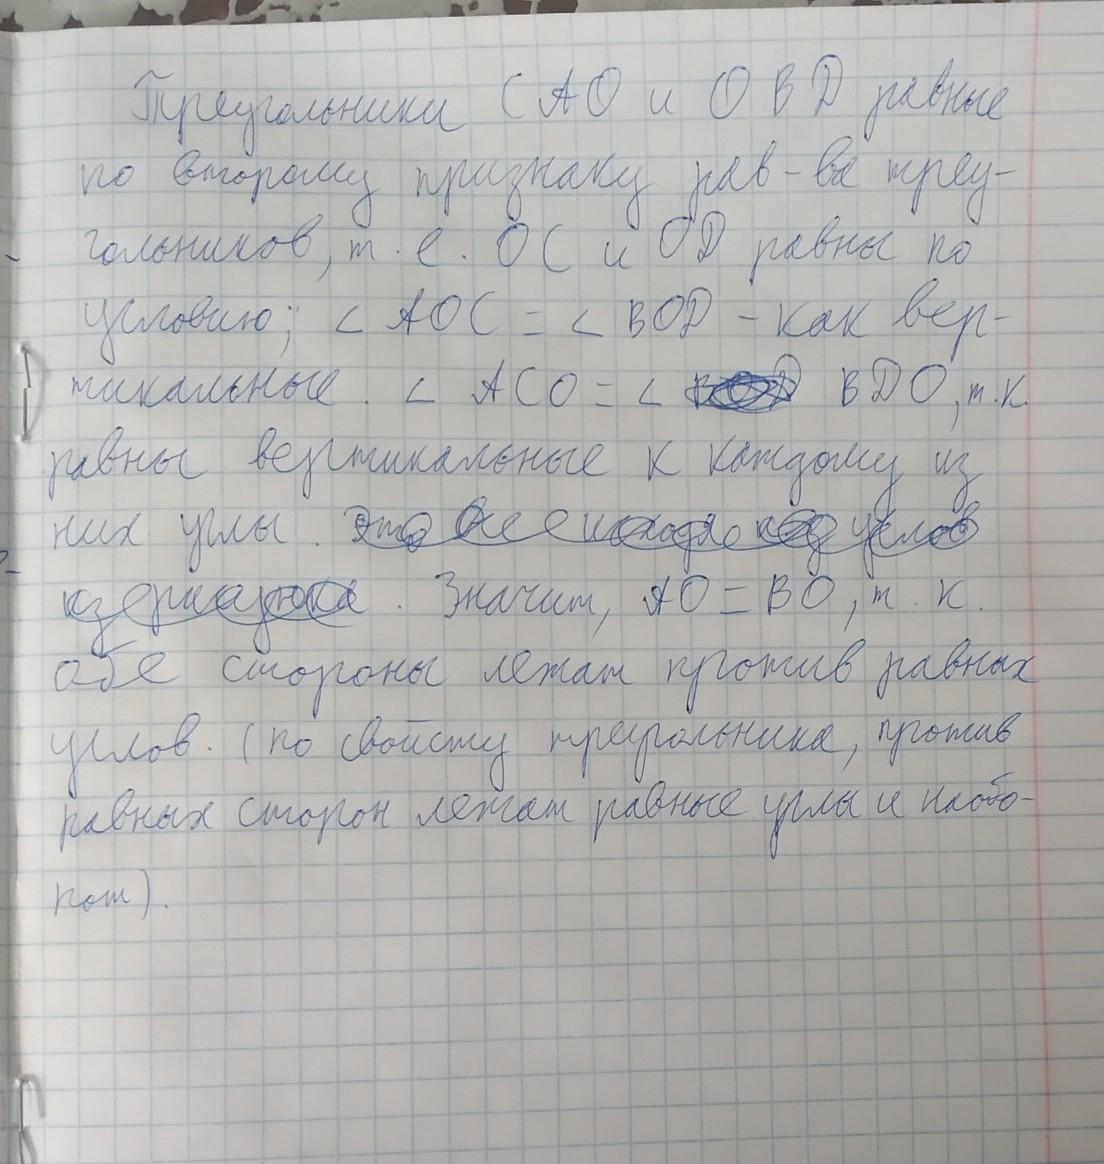 Треугольники CAO и OBD равные
по второму признаку рав-ва треу-
гольников, т.е. OC и OD равны по
условию; ∠ AOC = ∠ BOD - как вер-
тикальные. ∠ ACO = ∠ BDO, т.к.
равны вертикальные к каждому из
них углы.
Значит, AO = BO, т.к.
обе стороны лежат против равных
углов. (по свойсту треугольника, против
равных сторон лежат равные углы и наобо-
рот).